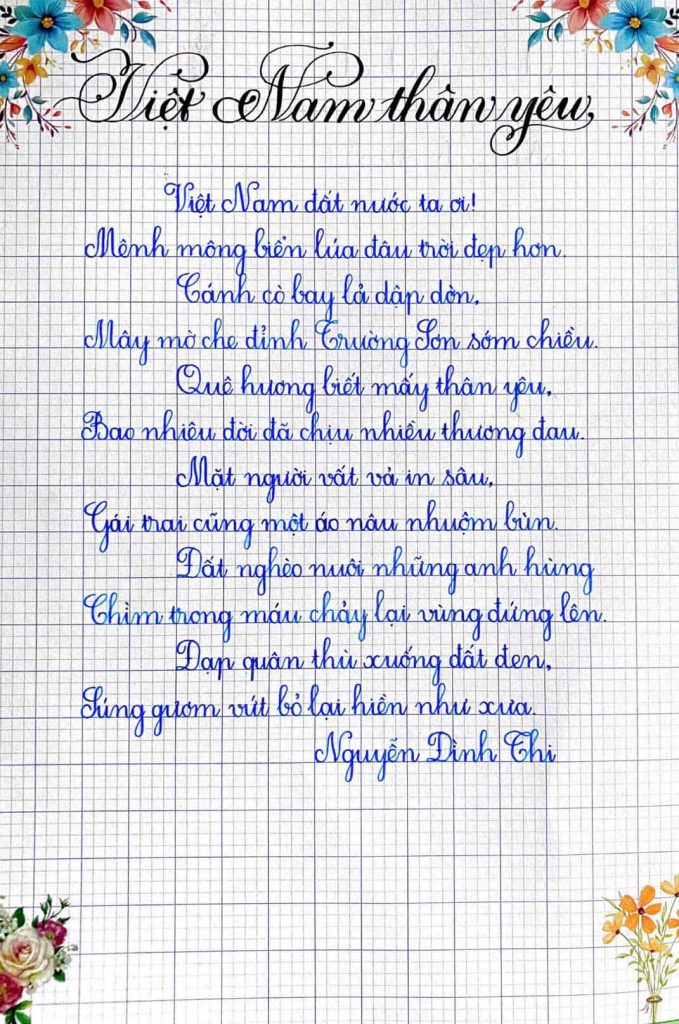 Việt Nam thân yêu,
Việt Nam đất nước ta ơi!
Mênh mông biển lúa đâu trời đẹp hơn.
Cánh cò bay lả dập dờn,
Mây mờ che đỉnh Trường Sơn sớm chiều.
Quê hương biết mấy thân yêu,
Bao nhiêu đời đã chịu nhiều thương đau.
Mặt người vất vả in sâu,
Gái trai cũng một áo nâu nhuộm bùn.
Đất nghèo nuôi những anh hùng
Chìm trong máu chảy lại vùng đứng lên.
Đạp quân thù xuống đất đen,
Súng gươm vứt bỏ lại hiền như xưa.
Nguyễn Đình Thi